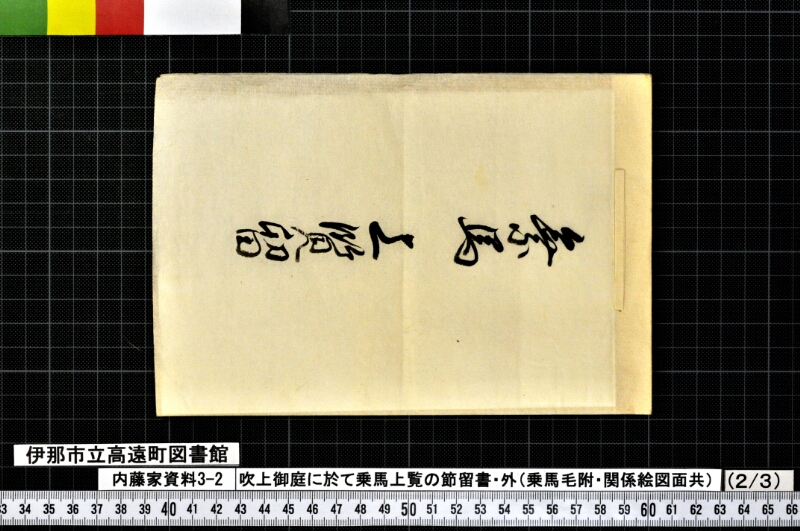 乗馬
上覧留
伊那市立高遠町図書館
内藤家資料3-2
吹上御庭に於て乗馬上覧の節留書・外（乗馬毛附・関係絵図面共）
(2/3)
33 34 35 36 37 38 39 40 41 42 43 44 45 46 47 48 49 50 51 52 53 54 55 56 57 58 59 60 61 62 63 64 65 66